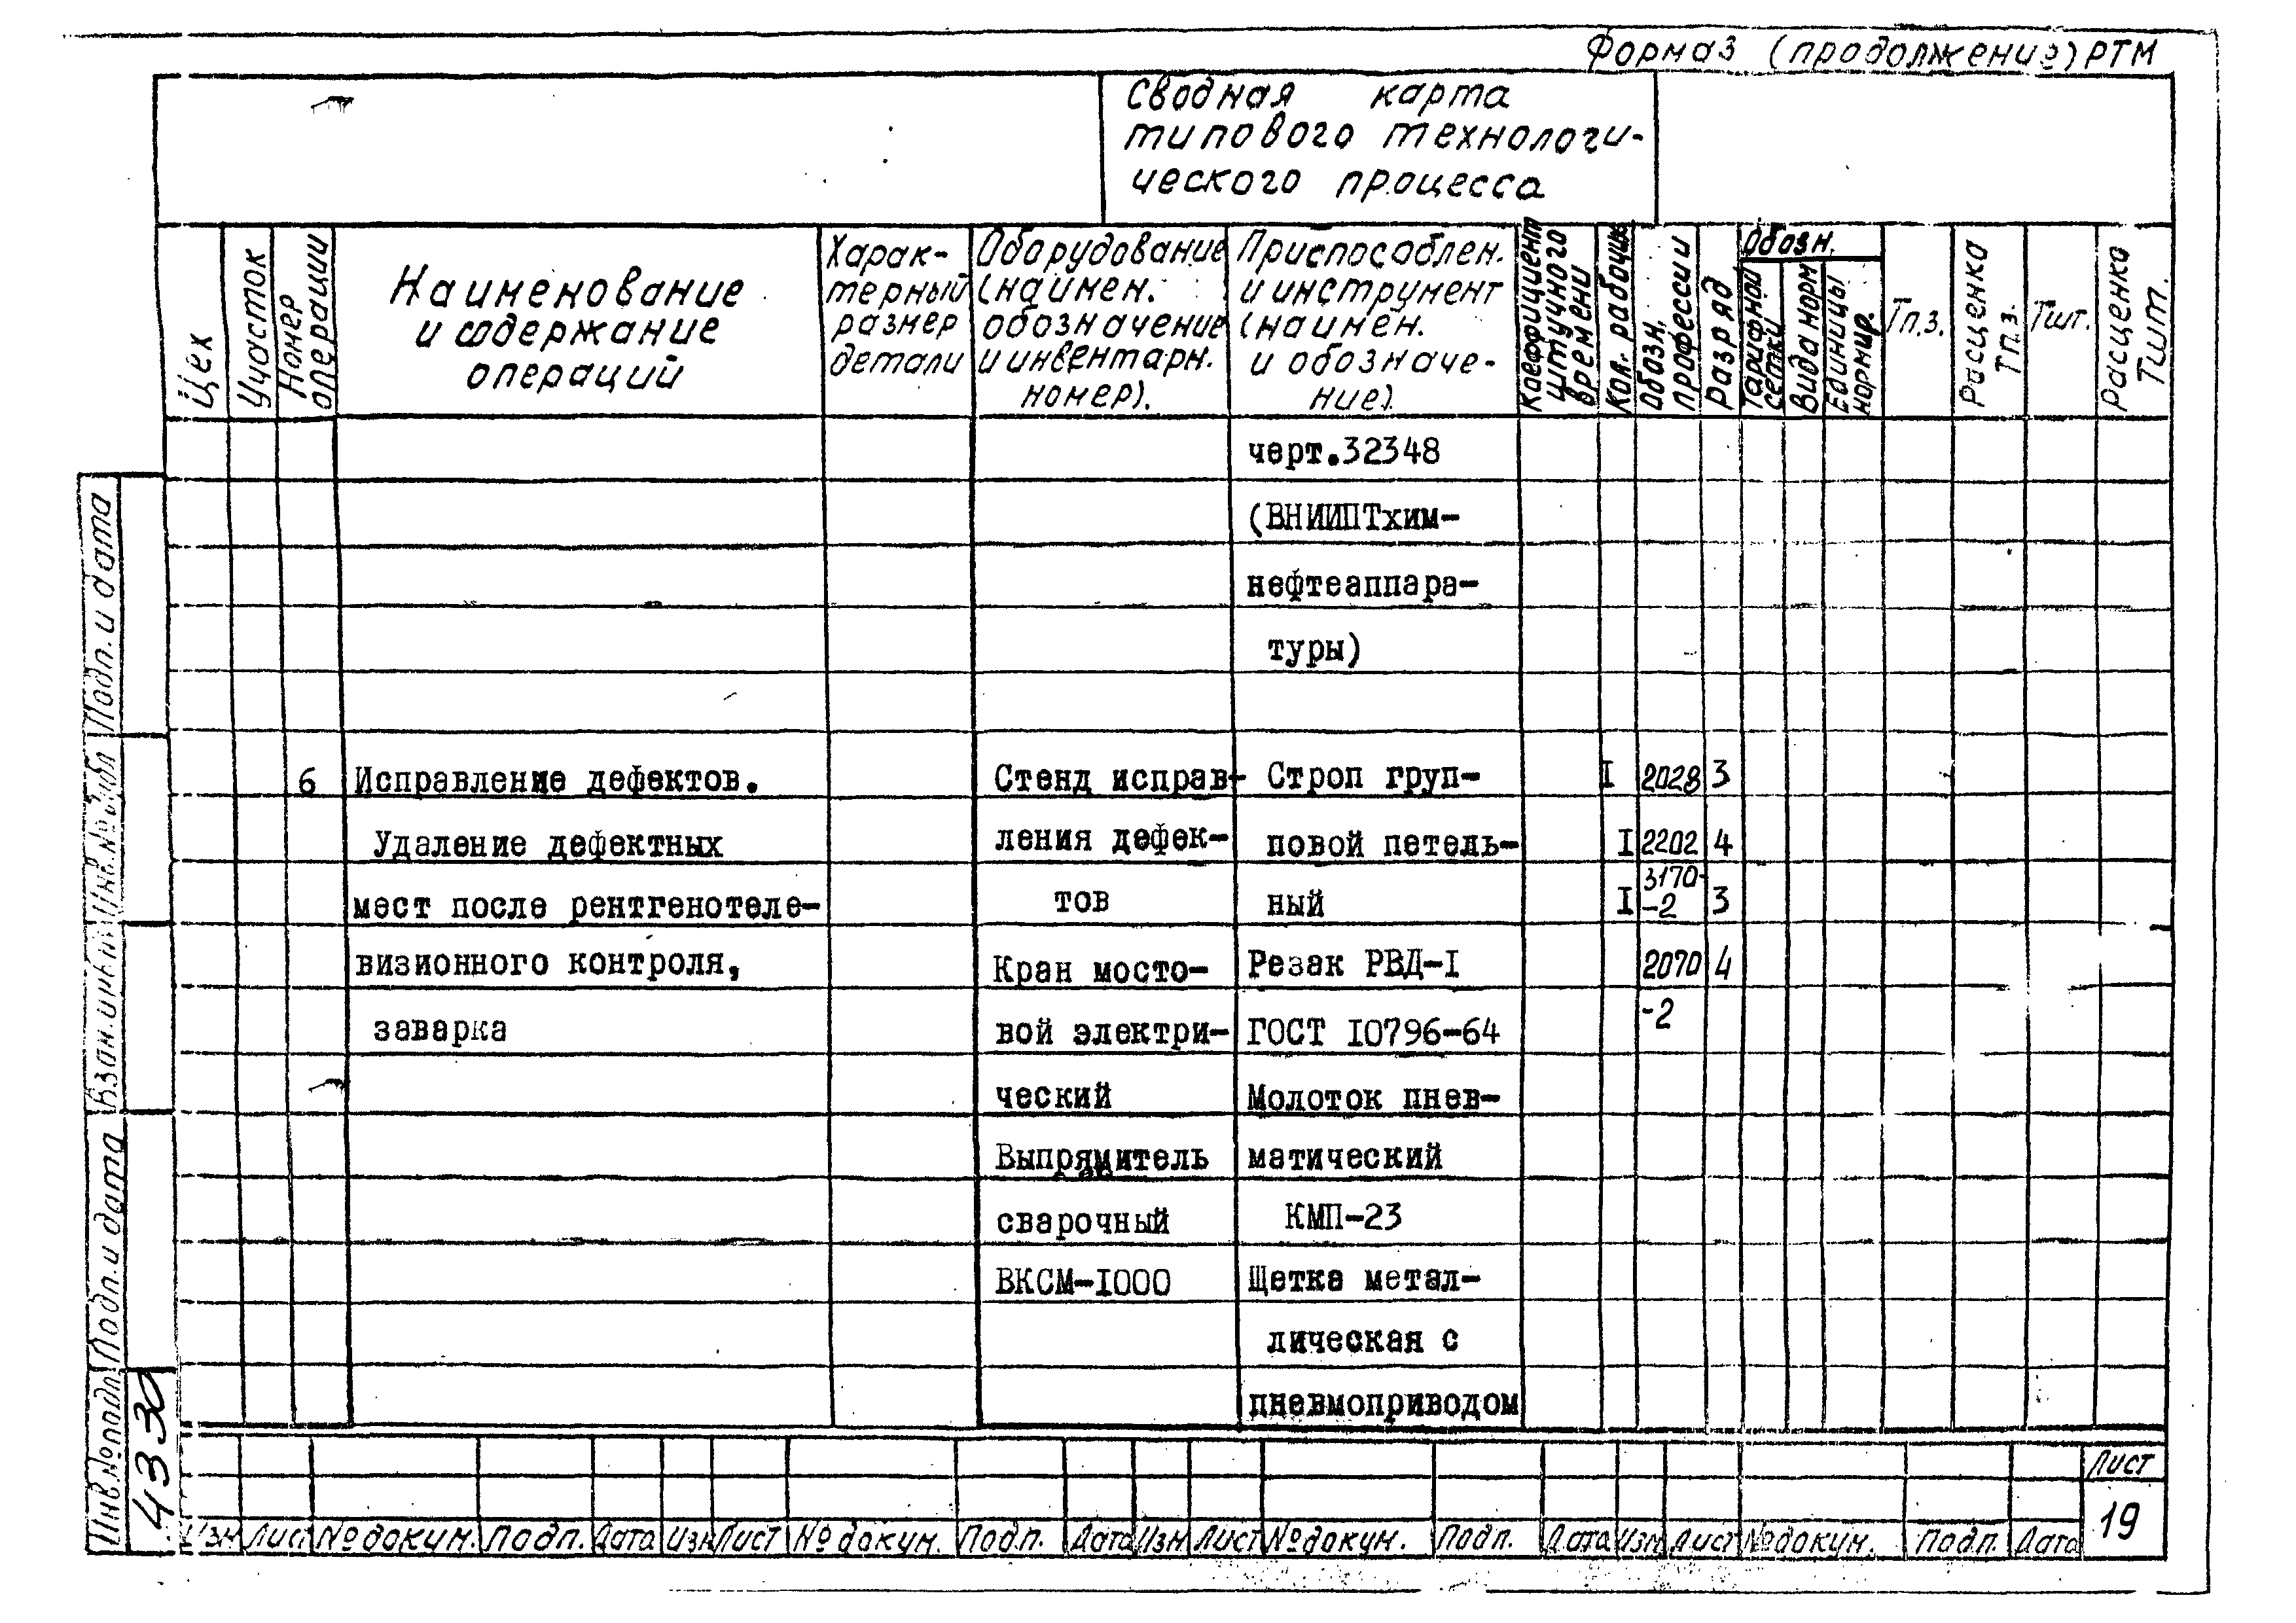 Форма 3 (продолжение) РТМ
Сводная карта
типового технологи-
ческого процесса
Цех
Участок
Номер
операции
Наименование
и содержание
операций
Харак-
терный
размер
детали
Оборудование
(наимен.
обозначение
и инвентарн.
номер).
Приспособлен.
и инструмент
(наимен.
и обозначе-
ние).
Коэффициент
штучного
времени
Кол. рабочих
Обозн.
профессии
Разряд
Обозн.
Тарифной
сетки
Вида норм
Единицы
нормир.
Тп.з.
Расценка
Тп.з.
Тшт.
Расценка
Тшт.
черт.32348
(ВНИИПТхим-
нефтеаппара-
туры)
6 Исправление дефектов. Стенд исправ- Строп груп- I 2028 3
Удаление дефектных ления дефек- повой петель- I 2202 4
мест после рентгенотеле- тов ный I 3170-
-2 3
визионного контроля, Кран мосто- Резак РВД-I 2070 4
заварка вой электри- ГОСТ I0796-64 -2
ческий Молоток пнев-
Выпрямитель матический
сварочный КМП-23
ВКСМ-I000 Щетка метал-
лическая с
пневмоприводом
Подп. и дата
Инв.№ дубл
Взам.инв.№
Подп. и дата
Инв.№ подл.
4330
Изм Лист № докум. Подп. Дата Изм Лист № докум. Подп. Дата Изм Лист № докум. Подп. Дата Изм Лист № докум. Подп. Дата
Лист
19